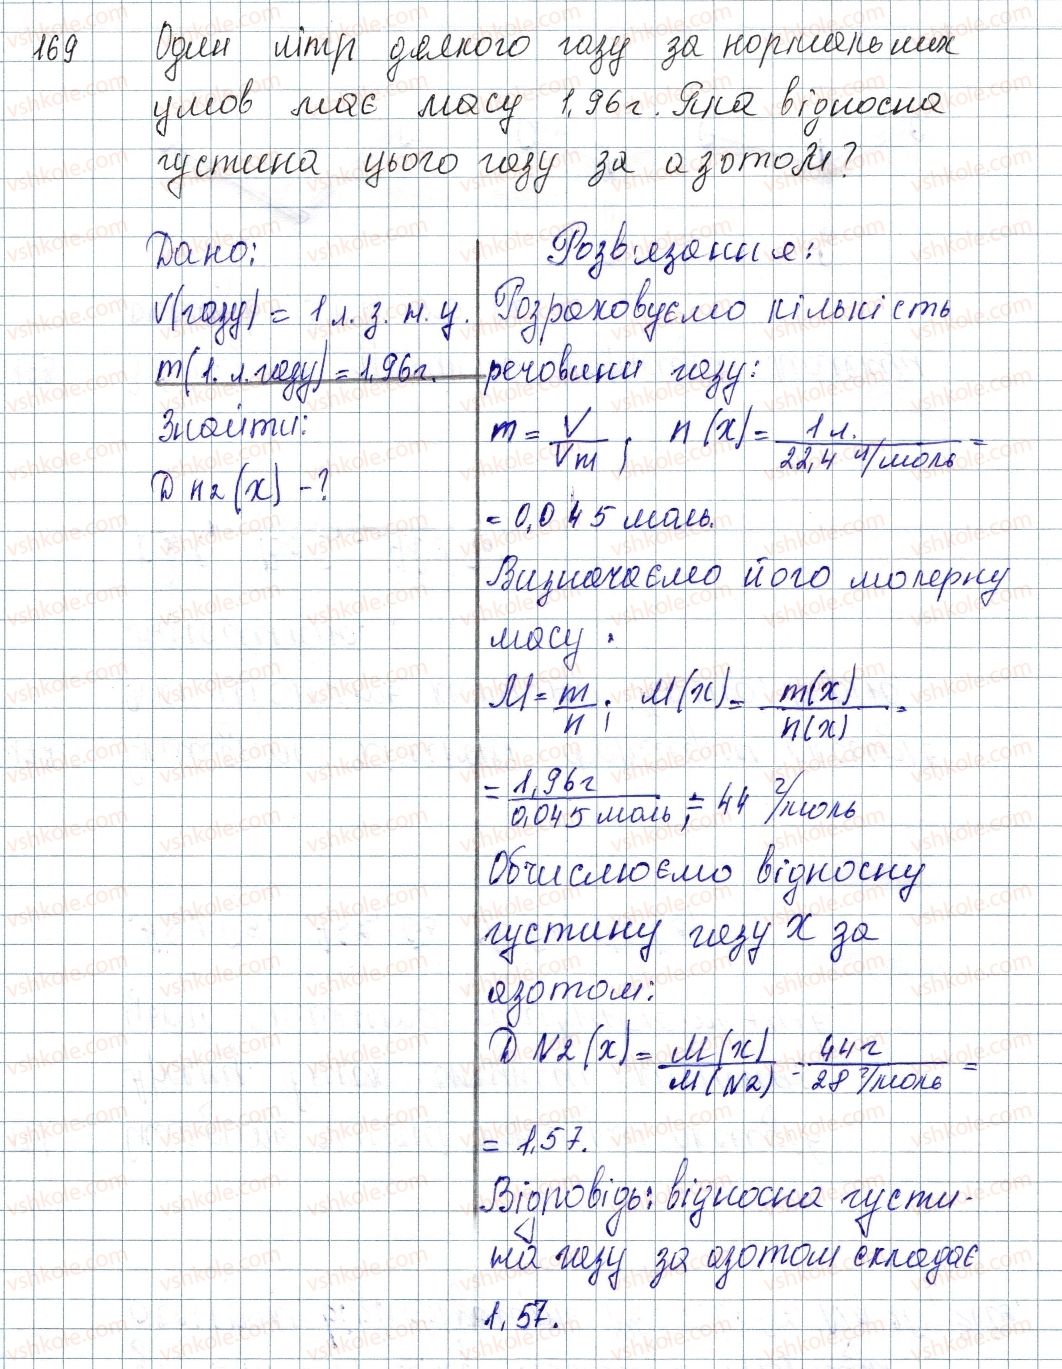 169 Один літр деякого газу за нормальних
умов має масу 1,96 г. Яка відносна
густина цього газу за азотом?
Дано:
V(газу) = 1 л. з. н. у.
m(1. л. газу) = 1,96 г.
Знайти:
D N2 (x) - ?
Розв'язання:
Розраховуємо кількість
речовини газу:
m = V / Vm ; n (x) = 1 л. / 22,4 л/моль =
= 0,045 моль.
Визначаємо його молерну
масу :
M = m / n ; M(x) = m(x) / n(x) =
= 1,96 г / 0,045 моль ; = 44 г/моль
Обчислюємо відносну
густину газу X за
азотом:
D N2 (x) = M(x) / M(N2) = 44 г / 28 г/моль =
= 1,57.
Відповідь: відносна густи-
на газу за азотом складає
1,57.
vshkole.com